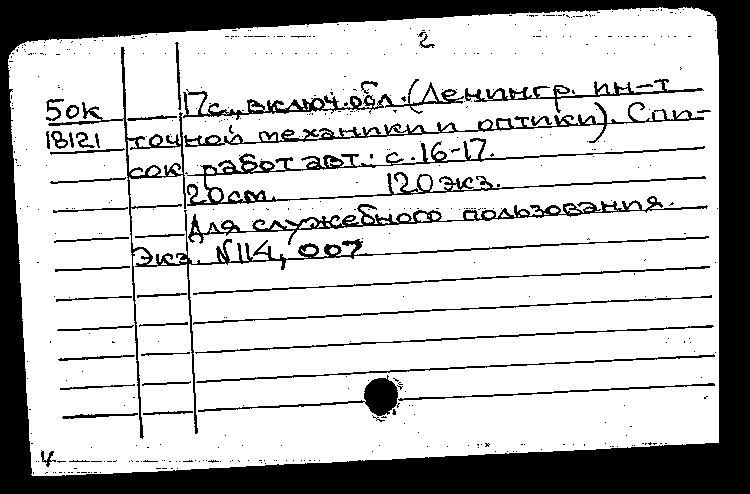 2
50к 17с., включ. обл. (Ленингр. ин-т
18121 точной механики и оптики). Спи-
сок работ авт.: с. 16-17.
20 см. 120 экз.
Для служебного пользования.
Экз. №114, 007